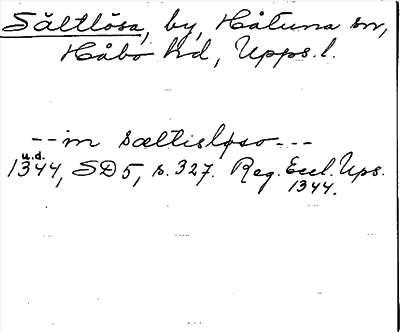 Sältlösa, by, Håtuna sn,
Håbo hd, Upps. l.
--- in sæltisløso ---
u.d.
1344, SD 5, s. 327. Reg. Eccl. Ups.
1344.